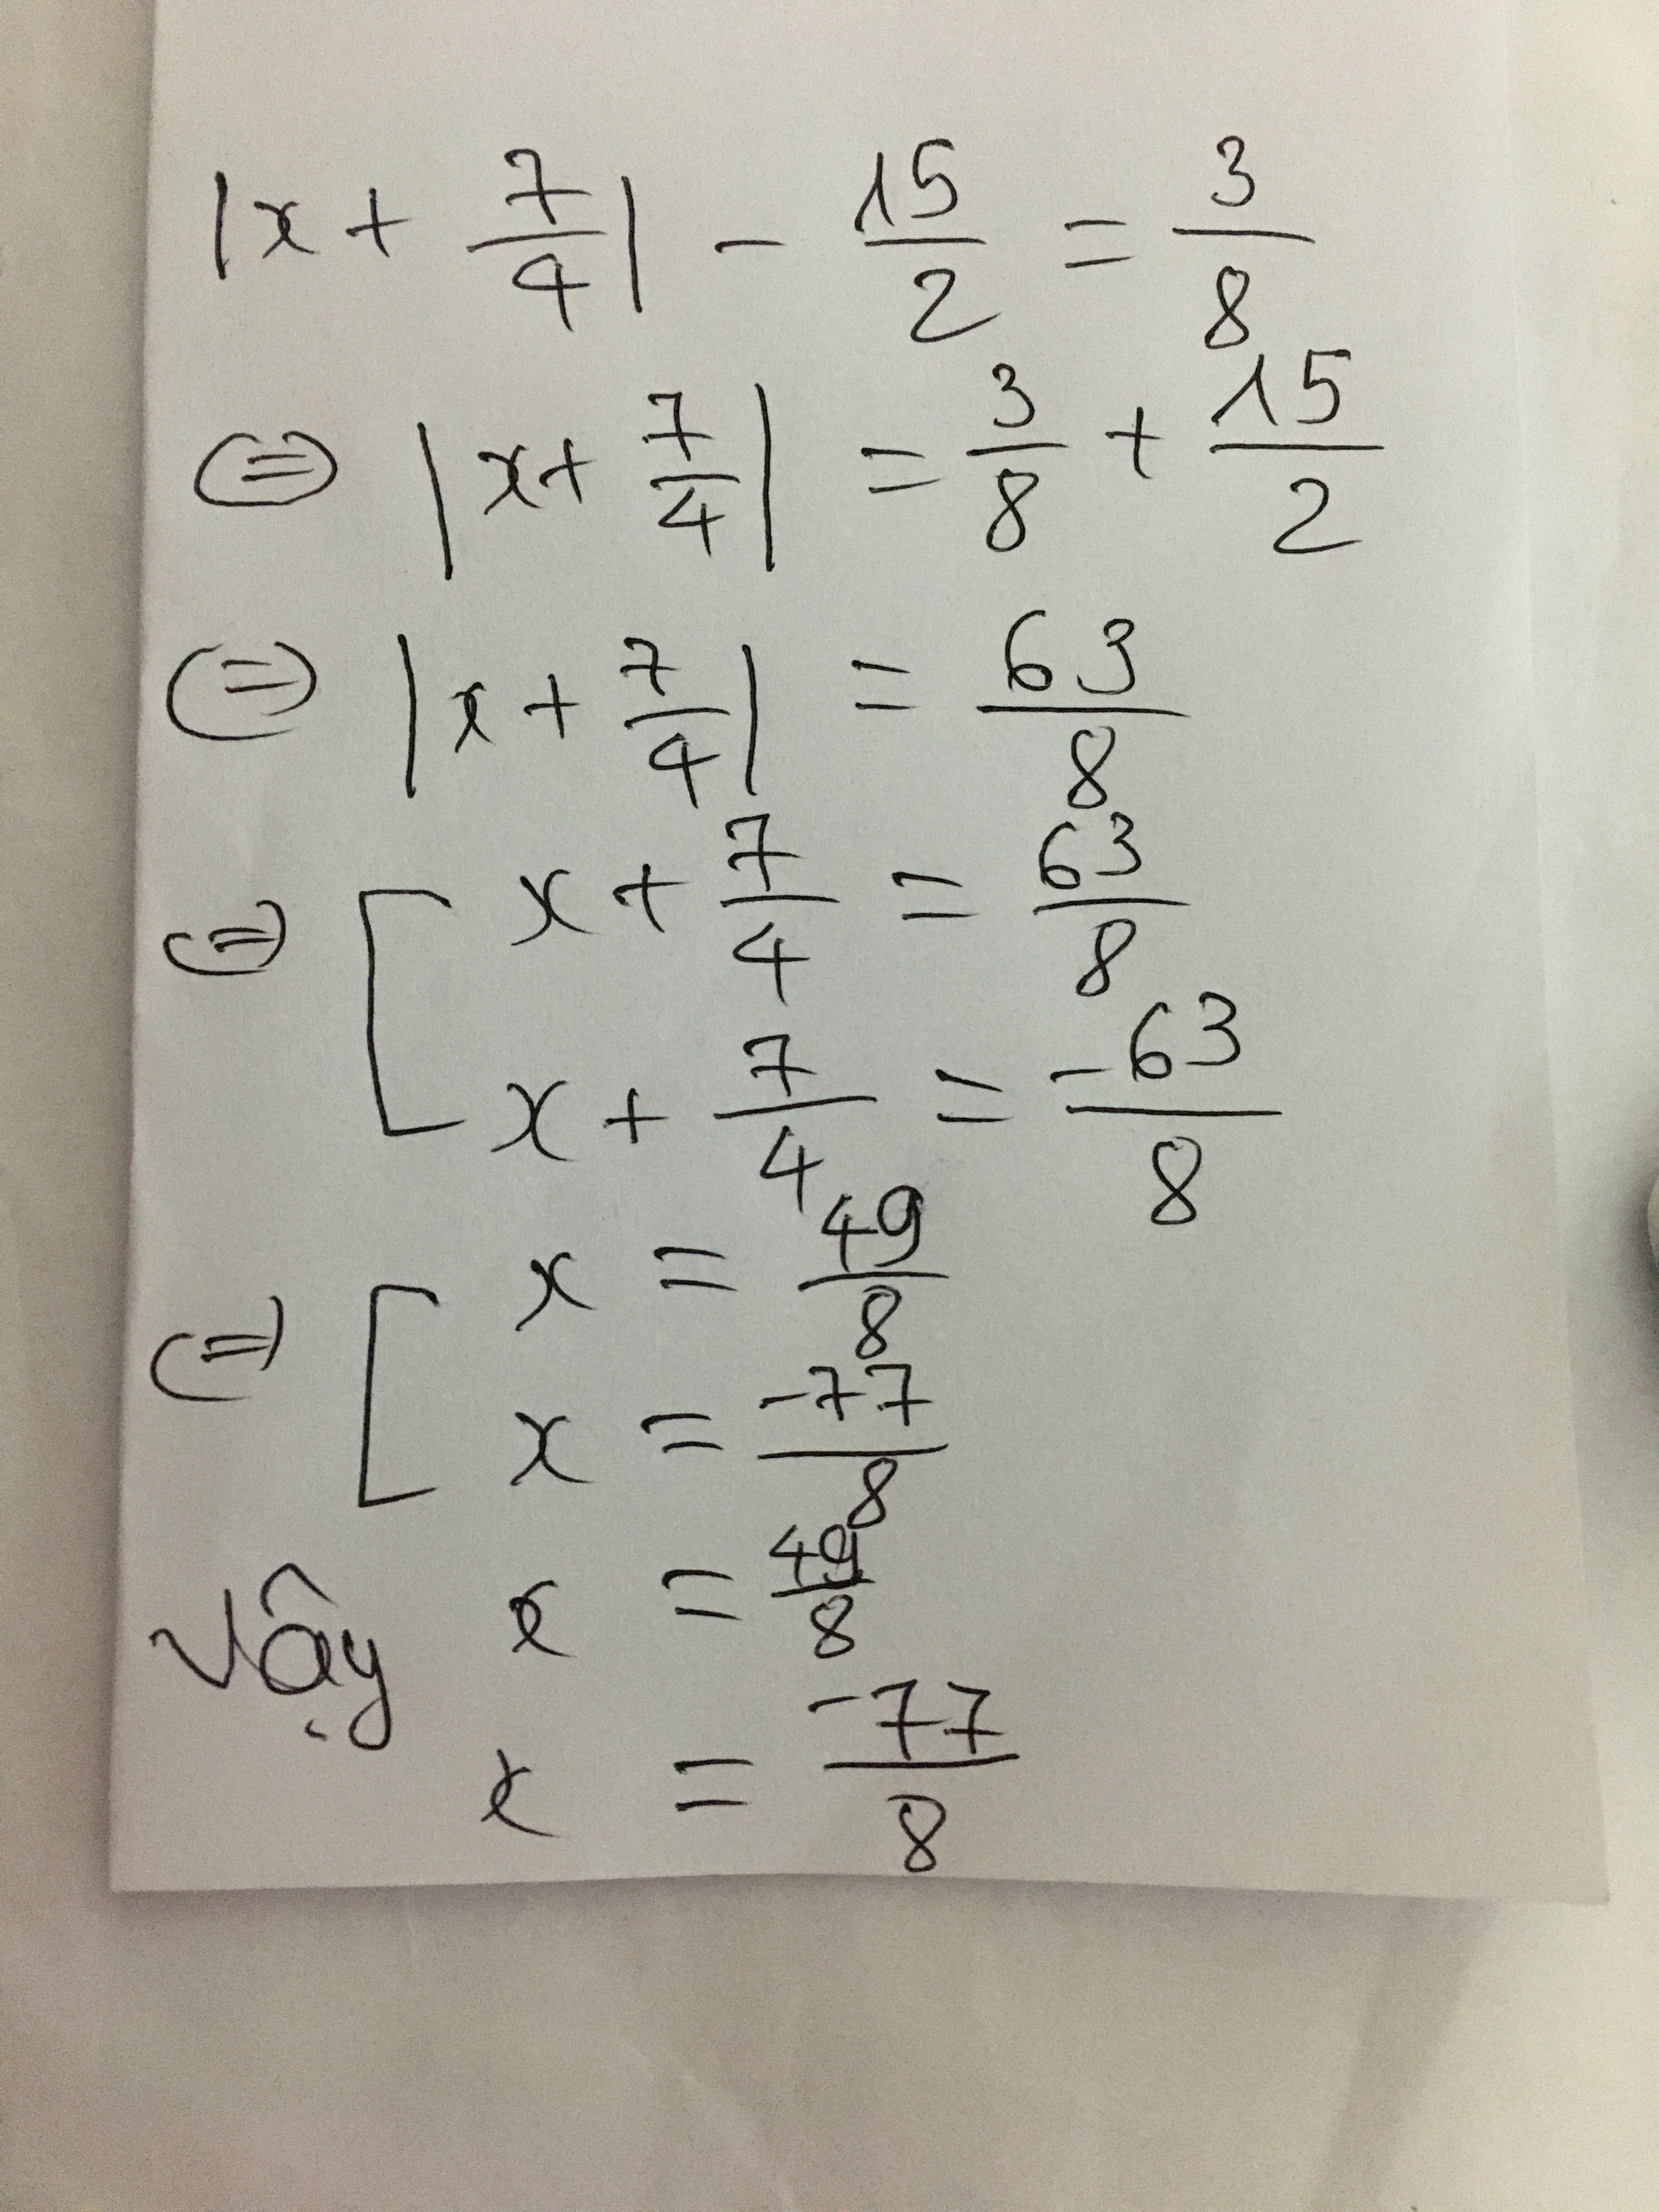 |x + 7/4| - 15/2 = 3/8
⇔ |x + 7/4| = 3/8 + 15/2
⇔ |x + 7/4| = 63/8
⇔ [ x + 7/4 = 63/8
x + 7/4 = -63/8
⇔ [ x = 49/8
x = -77/8
Vậy x = 49/8
x = -77/8